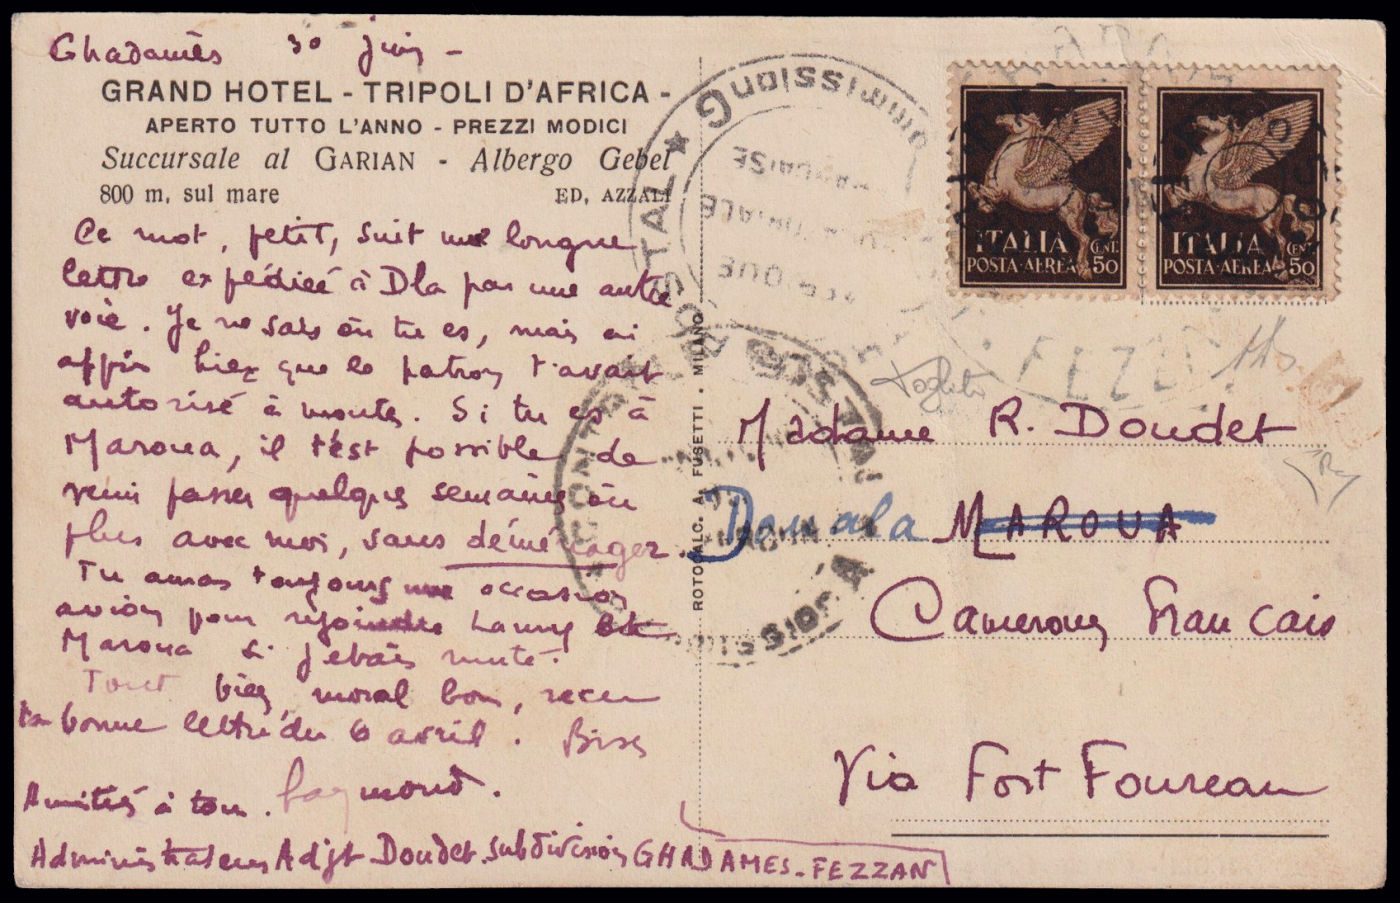 Ghadamès 30 juin -
GRAND HOTEL - TRIPOLI D'AFRICA -
APERTO TUTTO L'ANNO - PREZZI MODICI
Succursale al GARIAN - Albergo Gebel
800 m, sul mare
ED, AZZALI
Ce mot, petit, suit une longue
lettre expédiée à Dla par une autre
voie. Je ne sais où tu es, mais ai
appris hier que le patron t'avait
autorisé à monter. Si tu es à
Maroua, il t'est possible de
venir passer quelques semaines ou
plus avec moi, sans déménager.
Tu auras toujours une occasion
avion pour rejoindre Lamy
Maroua si j'étais muté.
Tout bien, moral bon, reçu
ta bonne lettre du 6 avril. Bises
Amitiés à tous. Raymond.
Administrateur Adjt Doudet subdivision GHADAMES-FEZZAN
ROTOCALC. A. FUSETTI . MILANO
ITALIA
POSTA·AEREA
CENT.
50
ITALIA
POSTA·AEREA
CENT.
50
FEZZ
Madame R. Doudet
Douala MAROUA
Cameroun Français
Via Fort Foureau